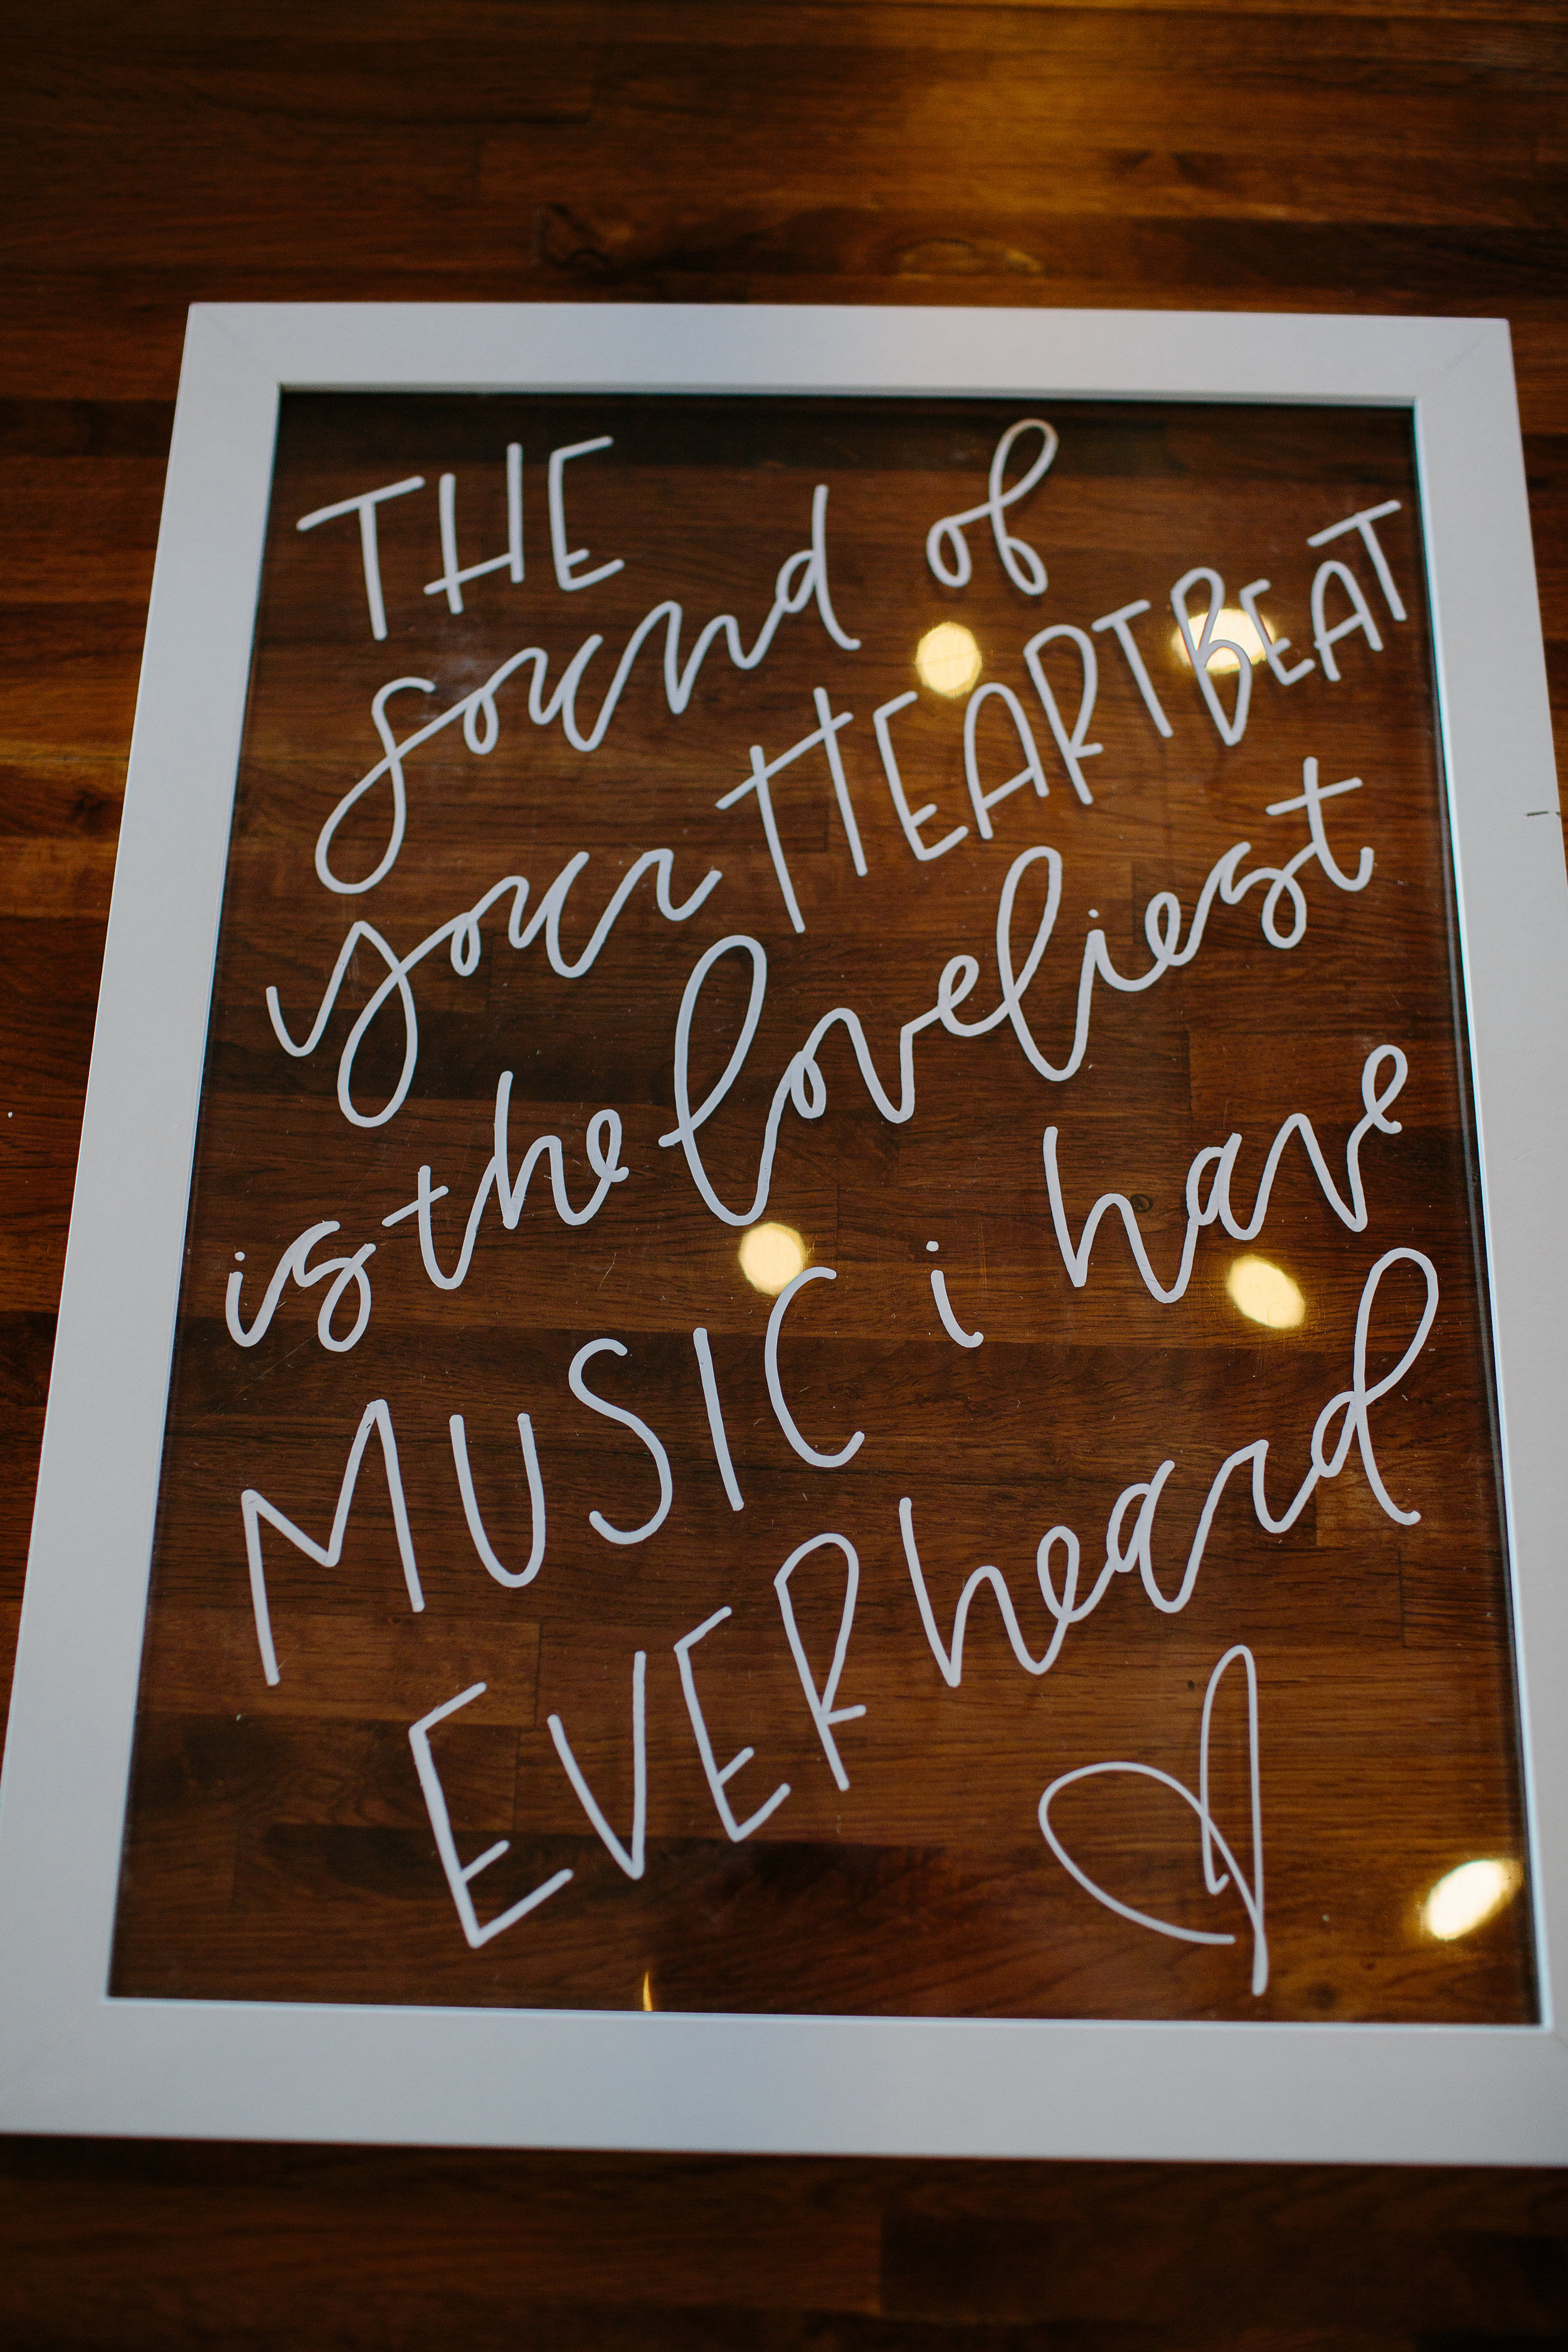 THE
sound of
your HEARTBEAT
is the loveliest
MUSIC i have
EVER heard